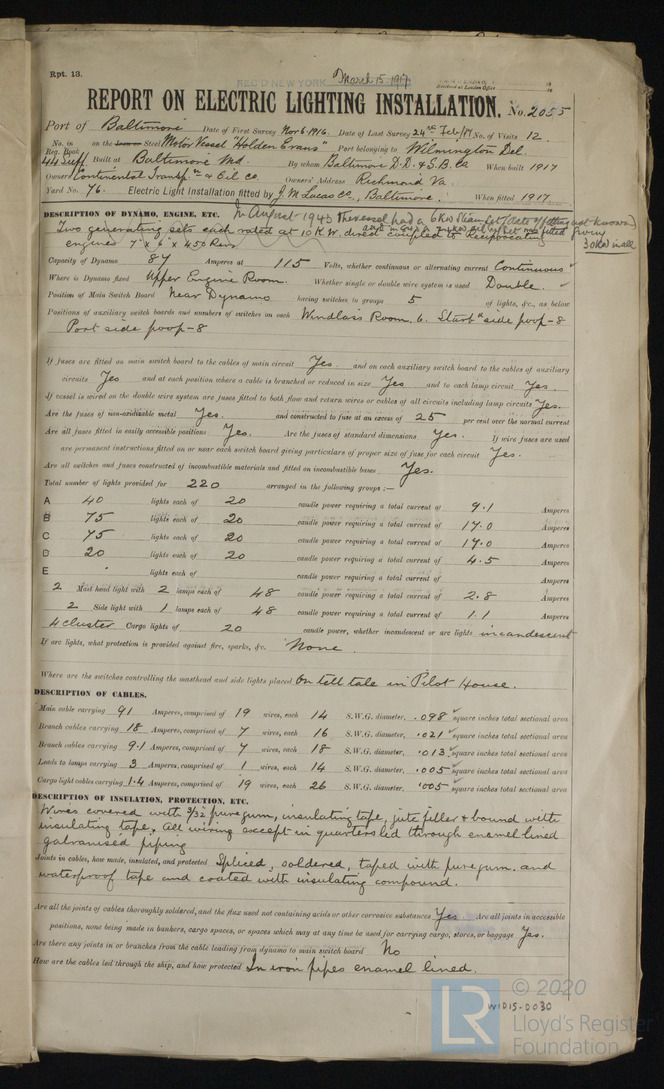 Rpt. 13.
REC'D NEW YORK March 15 1917
Received at London Office
REPORT ON ELECTRIC LIGHTING INSTALLATION. No. 2055
Port of Baltimore Date of First Survey Nov 6. 1916. Date of Last Survey 24th Feb/17 No. of Visits 12.
No. in Reg. Book 44 Supp on the Iron or Steel Motor Vessel "Holden Evans" Port belonging to Wilmington Del.
Built at Baltimore Md. By whom Baltimore D.D. & S.B. Co When built 1917
Owners Continental Transpn & Oil Co. Owners' Address Richmond Va.
Yard No. 76. Electric Light Installation fitted by J. M Lucas Co., Baltimore. When fitted 1917
DESCRIPTION OF DYNAMO, ENGINE, ETC. In August 1943 the vessel had a 6 KW Steam Set (date of fitting not known)
Two generating sets each rated at 10 K.W. direct coupled to Reciprocating
engines 7" x 6" x 450 Revs. 30KW in all
Capacity of Dynamo 87 Amperes at 115 Volts, whether continuous or alternating current Continuous
Where is Dynamo fixed Upper Engine Room. Whether single or double wire system is used Double.
Position of Main Switch Board Near Dynamo having switches to groups 5 of lights, &c., as below
Positions of auxiliary switch boards and numbers of switches on each Windlass Room. 6. Starbd side poop-8
Port side poop-8
If fuses are fitted on main switch board to the cables of main circuit Yes and on each auxiliary switch board to the cables of auxiliary
circuits Yes and at each position where a cable is branched or reduced in size Yes and to each lamp circuit Yes.
If vessel is wired on the double wire system are fuses fitted to both flow and return wires or cables of all circuits including lamp circuits Yes.
Are the fuses of non-oxidizable metal Yes. and constructed to fuse at an excess of 25 per cent over the normal current
Are all fuses fitted in easily accessible positions Yes. Are the fuses of standard dimensions Yes. If wire fuses are used
are permanent instructions fitted on or near each switch board giving particulars of proper size of fuse for each circuit Yes.
Are all switches and fuses constructed of incombustible materials and fitted on incombustible bases Yes.
Total number of lights provided for 220 arranged in the following groups :—
A 40 lights each of 20 candle power requiring a total current of 9.1 Amperes
B 75 lights each of 20 candle power requiring a total current of 17.0 Amperes
C 75 lights each of 20 candle power requiring a total current of 17.0 Amperes
D 20 lights each of 20 candle power requiring a total current of 4.5 Amperes
E lights each of candle power requiring a total current of Amperes
2 Mast head light with 2 lamps each of 48 candle power requiring a total current of 2.8 Amperes
2 Side light with 1 lamps each of 48 candle power requiring a total current of 1.1 Amperes
4 Cluster Cargo lights of 20 candle power, whether incandescent or arc lights incandescent
If arc lights, what protection is provided against fire, sparks, &c. None.
Where are the switches controlling the masthead and side lights placed On tell tale in Pilot House.
DESCRIPTION OF CABLES.
Main cable carrying 91 Amperes, comprised of 19 wires, each 14 S.W.G. diameter, .098 square inches total sectional area
Branch cables carrying 18 Amperes, comprised of 7 wires, each 16 S.W.G. diameter, .021 square inches total sectional area
Branch cables carrying 9.1 Amperes, comprised of 7 wires, each 18 S.W.G. diameter, .013 square inches total sectional area
Leads to lamps carrying 3 Amperes, comprised of 1 wires, each 14 S.W.G. diameter, .005 square inches total sectional area
Cargo light cables carrying 1.4 Amperes, comprised of 19 wires, each 26 S.W.G. diameter, .005 square inches total sectional area
DESCRIPTION OF INSULATION, PROTECTION, ETC.
Wires covered with 3/32 pure gum, insulating tape, jute filler & bound with
insulating tape, All wiring except in quarters led through enamel lined
galvanised piping
Joints in cables, how made, insulated, and protected Spliced, soldered, taped with pure gum and
waterproof tape and coated with insulating compound.
Are all the joints of cables thoroughly soldered, and the flux used not containing acids or other corrosive substances Yes Are all joints in accessible
positions, none being made in bunkers, cargo spaces, or spaces which may at any time be used for carrying cargo, stores, or baggage Yes.
Are there any joints in or branches from the cable leading from dynamo to main switch board No
How are the cables led through the ship, and how protected In iron pipes enamel lined.
W1015-0030
LR
© 2020
Lloyd's Register
Foundation